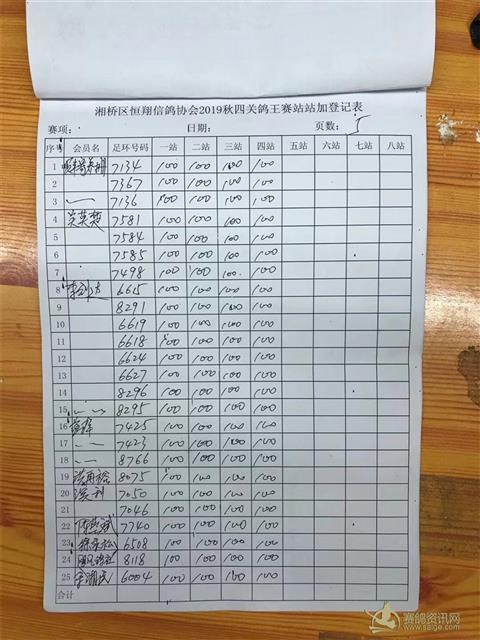 湘桥区恒翔信鸽协会2019秋四关鸽王赛站站加登记表
赛项: 日期: 页数: 5
序号 会员名 足环号码 一站 二站 三站 四站 五站 六站 七站 八站
1 7134 100 100 100 100
2 7367 100 100 100 100
3 7136 100 100 100 100
4 吴英楚 7581 100 100 100 100
5 7584 100 100 100 100
6 7585 100 100 100 100
7 7498 100 100 100 100
8 6615 100 100 100 100
9 8291 100 100 100 100
10 6619 100 100 100 100
11 6618 100 100 100 100
12 6624 100 100 100 100
13 6627 100 100 100 100
14 8296 100 100 100 100
15 8295 100 100 100 100
16 7425 100 100 100 100
17 7423 100 100 100 100
18 8766 100 100 100 100
19 8075 100 100 100 100
20 7050 100 100 100 100
21 7046 100 100 100 100
22 7740 100 100 100 100
23 6508 100 100 100 100
24 8118 100 100 100 100
25 6004 100 100 100 100
合计
赛鸽资讯网
www.saige.com